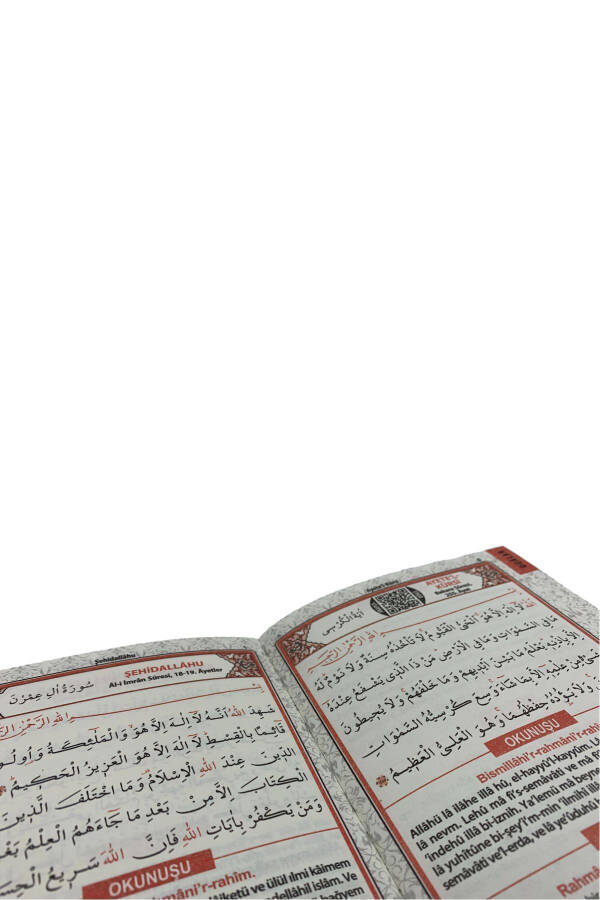 Şehidallâhu
ŞEHİDALLÂHU
Âl-i İmrân Sûresi, 18-19. Ayetler
سُورَةُ اٰلِ عِمْرٰنَ
شَهِدَ اللّٰهُ اَنَّهُ لَٓا اِلٰهَ اِلَّا هُوَۙ وَالْمَلٰٓئِكَةُ وَاُو۬لُوا
قَٓائِماً بِالْقِسْطِۜ لَٓا اِلٰهَ اِلَّا هُوَ الْعَز۪يزُ الْحَك۪يمُۜ
الدّ۪ينَ عِنْدَ اللّٰهِ الْاِسْلَامُ۠ وَمَا اخْتَلَفَ الَّذ۪ينَ
الْكِتَابَ اِلَّا مِنْ بَعْدِ مَا جَٓاءَهُمُ الْعِلْمُ
وَمَنْ يَكْفُرْ بِاٰيَاتِ اللّٰهِ فَاِنَّ اللّٰهَ سَر۪يعُ
OKUNUŞU
ve ülül ılmi kâimem
islâm. Ve
AYETE'L-
KÜRSİ
Bakara Sûresi,
255. Ayet
اٰيَةُ الْكُرْسِي
اَللّٰهُ لَٓا اِلٰهَ اِلَّا هُوَۚ اَلْحَيُّ الْقَيُّومُۚ لَا تَأْخُذُهُ سِنَةٌ وَلَا نَوْمٌۜ لَهُ
مَا فِي السَّمٰوَاتِ وَمَا فِي الْاَرْضِۜ مَنْ ذَا الَّذ۪ي يَشْفَعُ عِنْدَهُٓ
اِلَّا بِاِذْنِه۪ۜ يَعْلَمُ مَا بَيْنَ اَيْد۪يهِمْ وَمَا خَلْفَهُمْۚ وَلَا يُح۪يطُونَ
مِنْ عِلْمِه۪ٓ اِلَّا بِمَا شَٓاءَۚ وَسِعَ كُرْسِيُّهُ السَّمٰوَاتِ
وَلَا يَؤُ۫دُهُ حِفْظُهُمَاۚ وَهُوَ الْعَلِيُّ الْعَظ۪يمُ
OKUNUŞU
Bismillâhi'r-rahmâni'r-rahîm.
Allâhü lâ ilâhe illâ hû, el-hayyü'l-kayyûm.
lâ nevm. Lehû mâ fi's-semâvâti ve mâ
'indehû illâ bi-iznih. Ya'lemü mâ
lâ yuhîtûne bi-şey'i'm-min 'ilmihî
semâvâti ve'l-erda, ve lâ ye'ûdühû